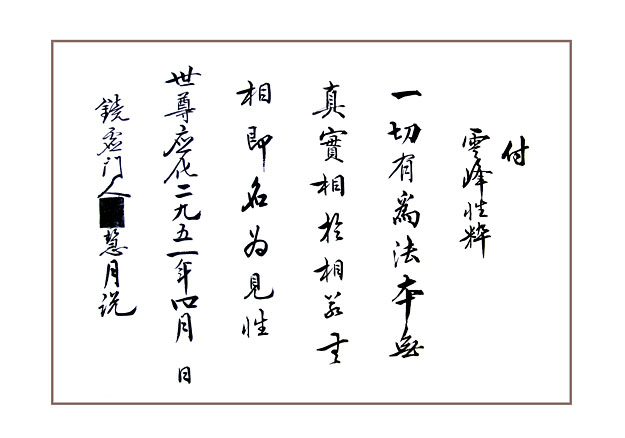 付
雲峰性粹
一切有為法本無
真實相於相若無
相即名为見性
世尊应化二九五一年四月 日
鏡虛门人 慧月说